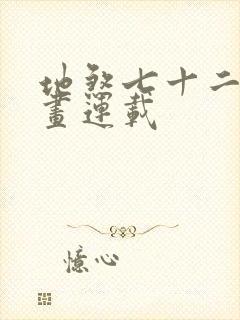 地煞七十二
畫運載
憶心